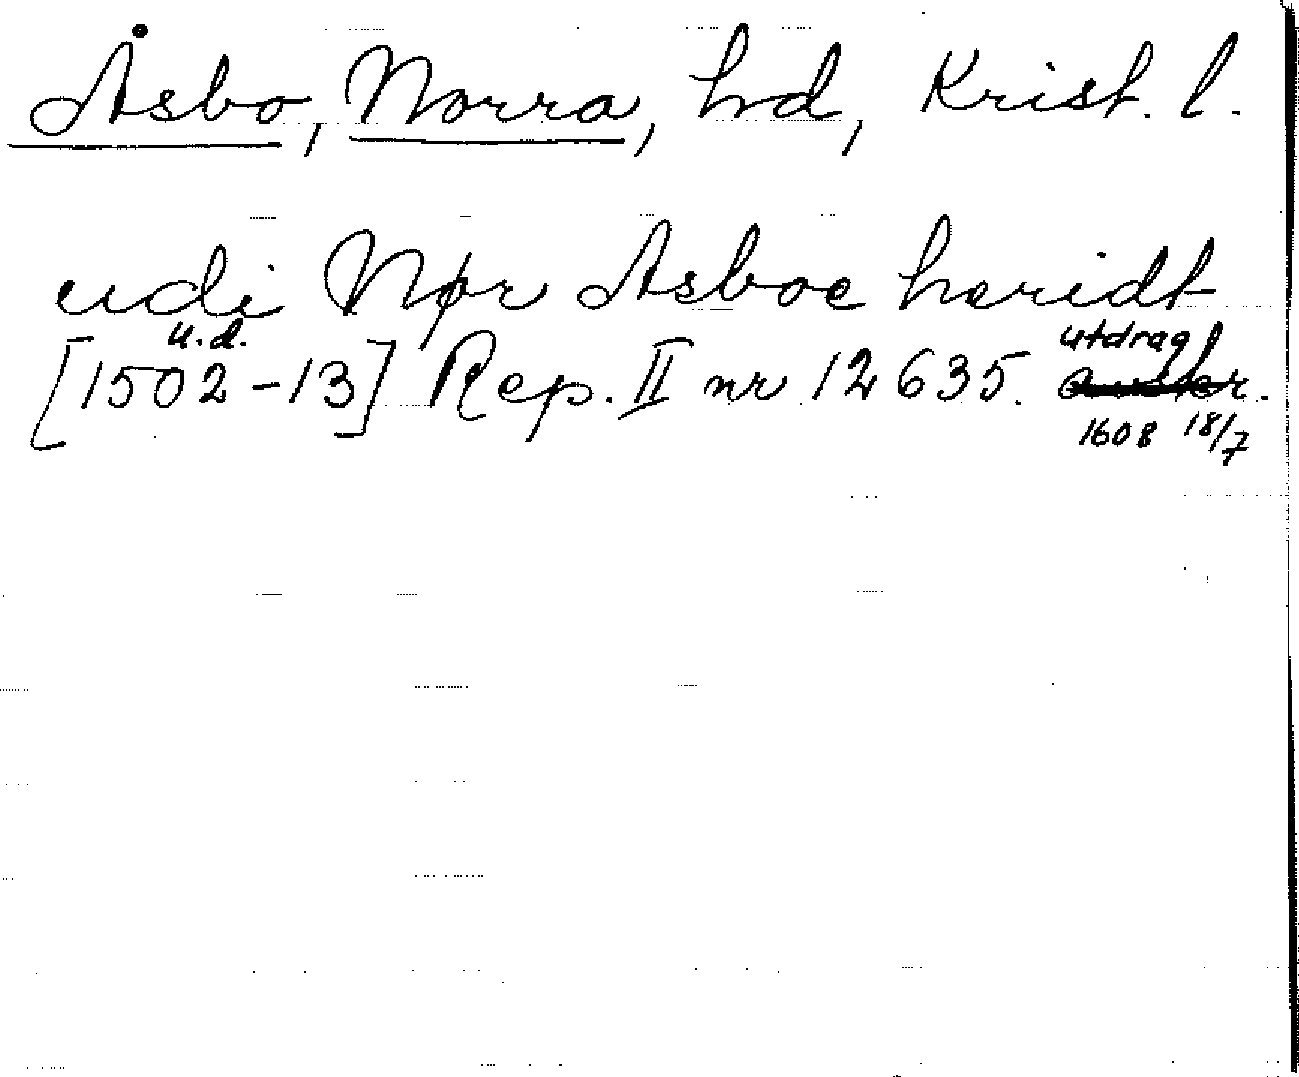 Åsbo, Norra, hd, Krist. l.
udi Nør Asboe heridt
u.d. utdrag
[1502-13] Rep. II nr 12635.
1608 18/7